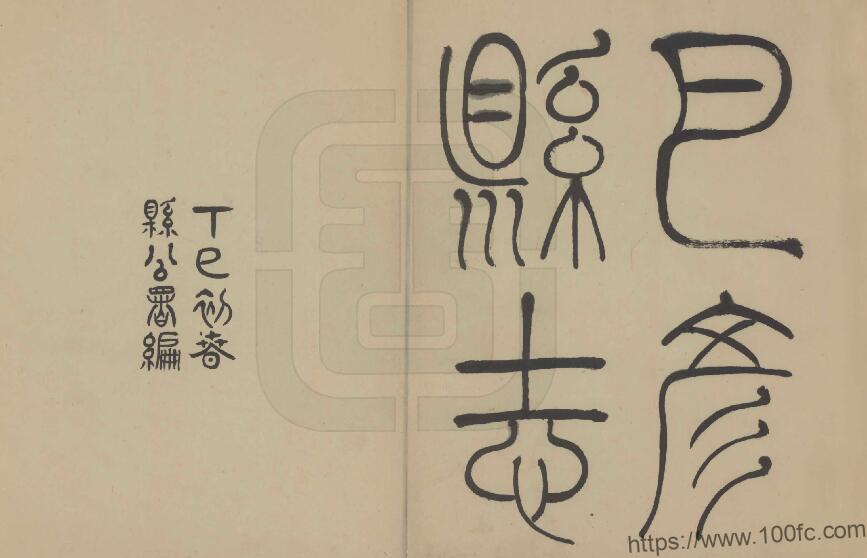 巴彥
縣志
丁巳初春
縣公署編
https://www.100fc.com